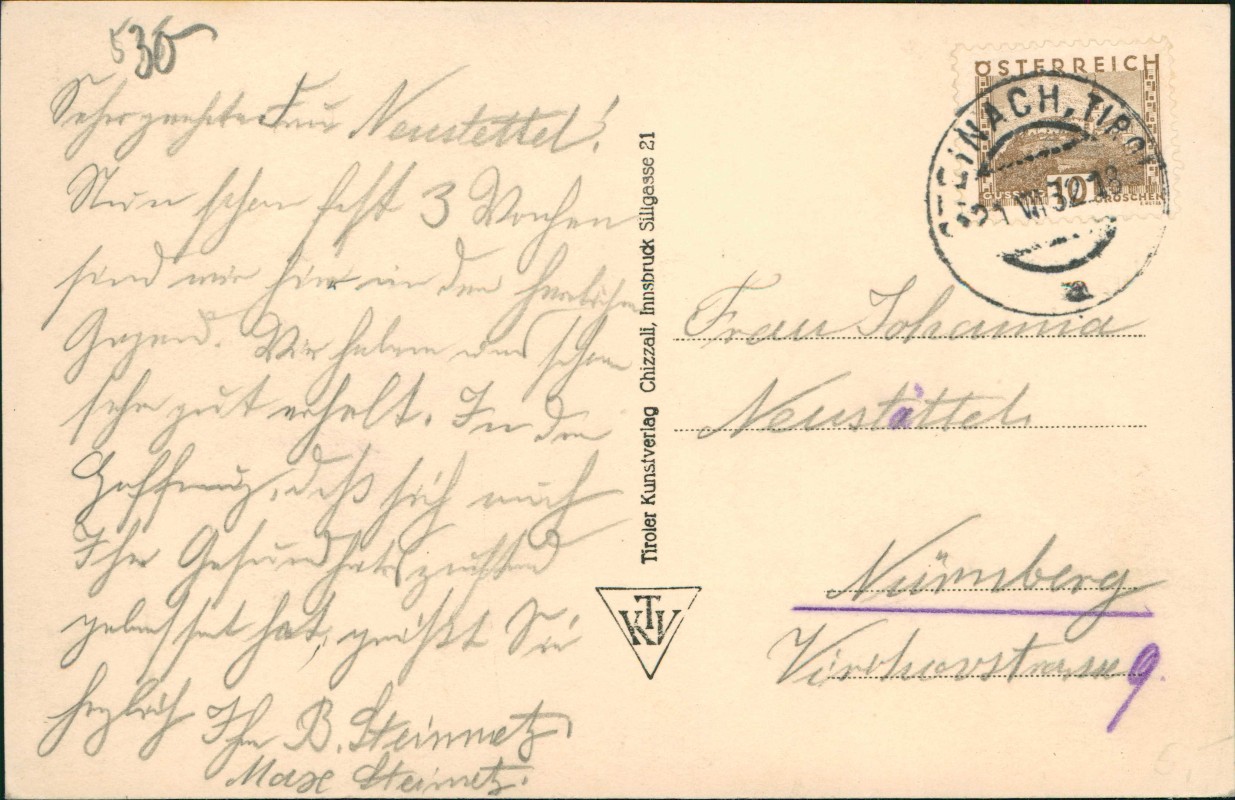 530
Sehr geehrte Frau Neustettel!
Nun schon fast 3 Wochen
sind wir hier in der herrlichen
Gegend. Wir haben uns schon
sehr gut erholt. In der
Hoffnung, daß sich auch
Ihr Gesundheitszustand
gebessert hat, grüßt Sie
herzlich Ihre B. Steinmetz
Max Steinmetz.
Tiroler Kunstverlag Chizzali, Innsbruck Sillgasse 21
KTV
ÖSTERREICH
GÜSSING 10 GROSCHEN
STEINACH, TIROL
21 VII 32 18
a
Frau Johanna
Neustättel
Nürnberg
Virchowstrasse 9.
6,-